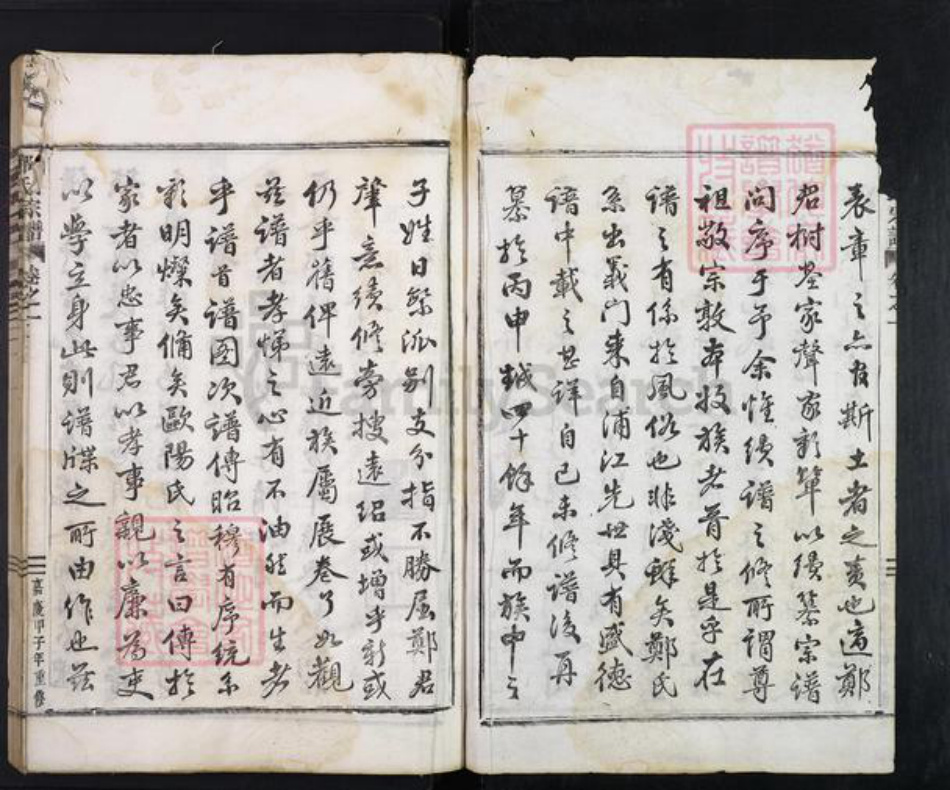 表章之亦有斯土者之責也適鄭
君樹堂家聲家彰輩以續纂宗譜
問序于予余惟續譜之修所謂尊
祖敬宗敦本收族者胥於是乎在
譜之有係於風俗也非淺鮮矣鄭氏
系出義門來自浦江先世具有盛德
譜中載之甚詳自己未修譜後再
纂於丙申越四十餘年而族中之
子姓日繁派別支分指不勝屈鄭君
肇意續修旁搜遠紹或增乎新或
仍乎舊俾遠近族屬展卷了如觀
茲譜者孝悌之心有不油然而生者
乎譜首譜圖次譜傳昭穆有序統系
彰明燦矣備矣歐陽氏之言曰傳於
家者以忠事君以孝事親以廉為吏
以學立身此則譜牒之所由作也茲
氏宗譜
卷之一
嘉慶甲子年重修
FamilySearch